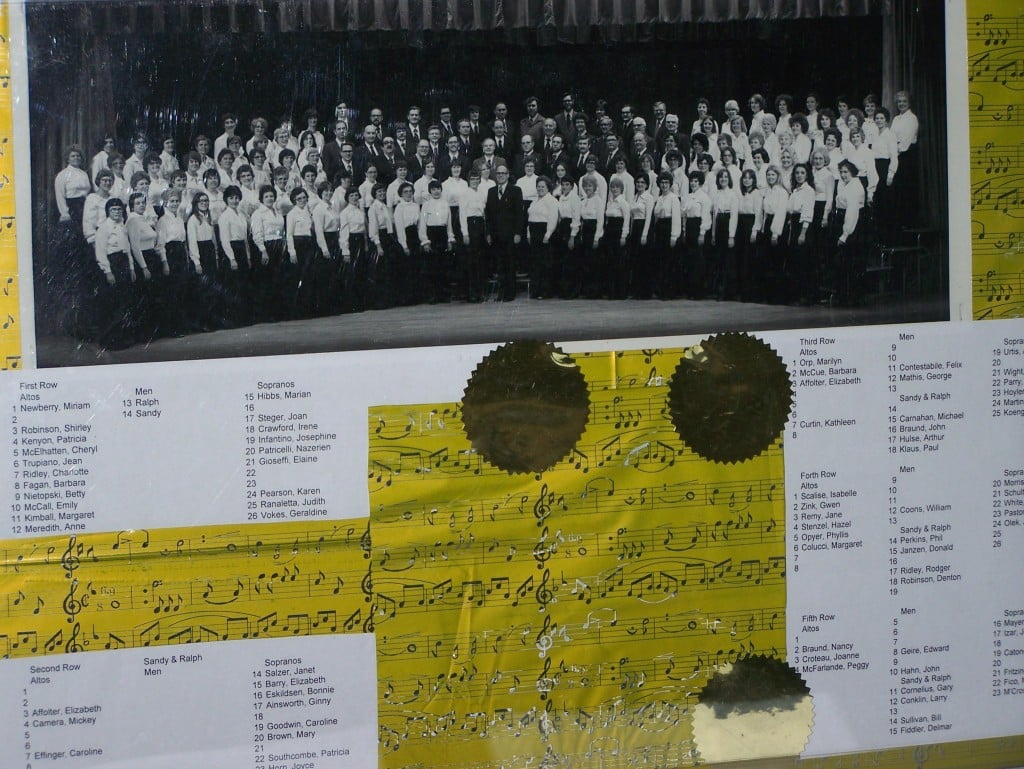 First Row
Altos
1 Newberry, Miriam
2
3 Robinson, Shirley
4 Kenyon, Patricia
5 McElhatten, Cheryl
6 Trupiano, Jean
7 Ridley, Charlotte
8 Fagan, Barbara
9 Nietopski, Betty
10 McCall, Emily
11 Kimball, Margaret
12 Meredith, Anne
Men
13 Ralph
14 Sandy
Sopranos
15 Hibbs, Marian
16
17 Steger, Joan
18 Crawford, Irene
19 Infantino, Josephine
20 Patricelli, Nazerien
21 Gioseffi, Elaine
22
23
24 Pearson, Karen
25 Ranaletta, Judith
26 Vokes, Geraldine
Second Row
Altos
1
2
3 Affolter, Elizabeth
4 Camera, Mickey
5
6
7 Effinger, Caroline
8
Sandy & Ralph
Men
Sopranos
14 Salzer, Janet
15 Barry, Elizabeth
16 Eskildsen, Bonnie
17 Ainsworth, Ginny
18
19 Goodwin, Caroline
20 Brown, Mary
21
22 Southcombe, Patricia
23 Horn, Joyce
Third Row
Altos
1 Orp, Marilyn
2 McCue, Barbara
3 Affolter, Elizabeth
7 Curtin, Kathleen
8
Men
9
10
11 Contestabile, Felix
12 Mathis, George
13
Sandy & Ralph
14
15 Carnahan, Michael
16 Braund, John
17 Hulse, Arthur
18 Klaus, Paul
19
20
21 Wight,
22 Parry,
24
25
Forth Row
Altos
1 Scalise, Isabelle
2 Zink, Gwen
3 Remy, Jane
4 Stenzel, Hazel
5 Opyer, Phyllis
6 Colucci, Margaret
7
8
Men
9
10
11
12 Coons, William
13
Sandy & Ralph
14 Perkins, Phil
15 Janzen, Donald
16
17 Ridley, Rodger
18 Robinson, Denton
19
20
21
22
23
24 Olek,
25
26
Fifth Row
Altos
1
2 Braund, Nancy
3 Croteau, Joanne
4 McFarlande, Peggy
Men
5
6
7
8 Geire, Edward
9
10 Hahn, John
Sandy & Ralph
11 Cornelius, Gary
12 Conklin, Larry
13
14 Sullivan, Bill
15 Fiddler, Delmar
16
17 Izar,
18
19
20
21
22 Fico,
23